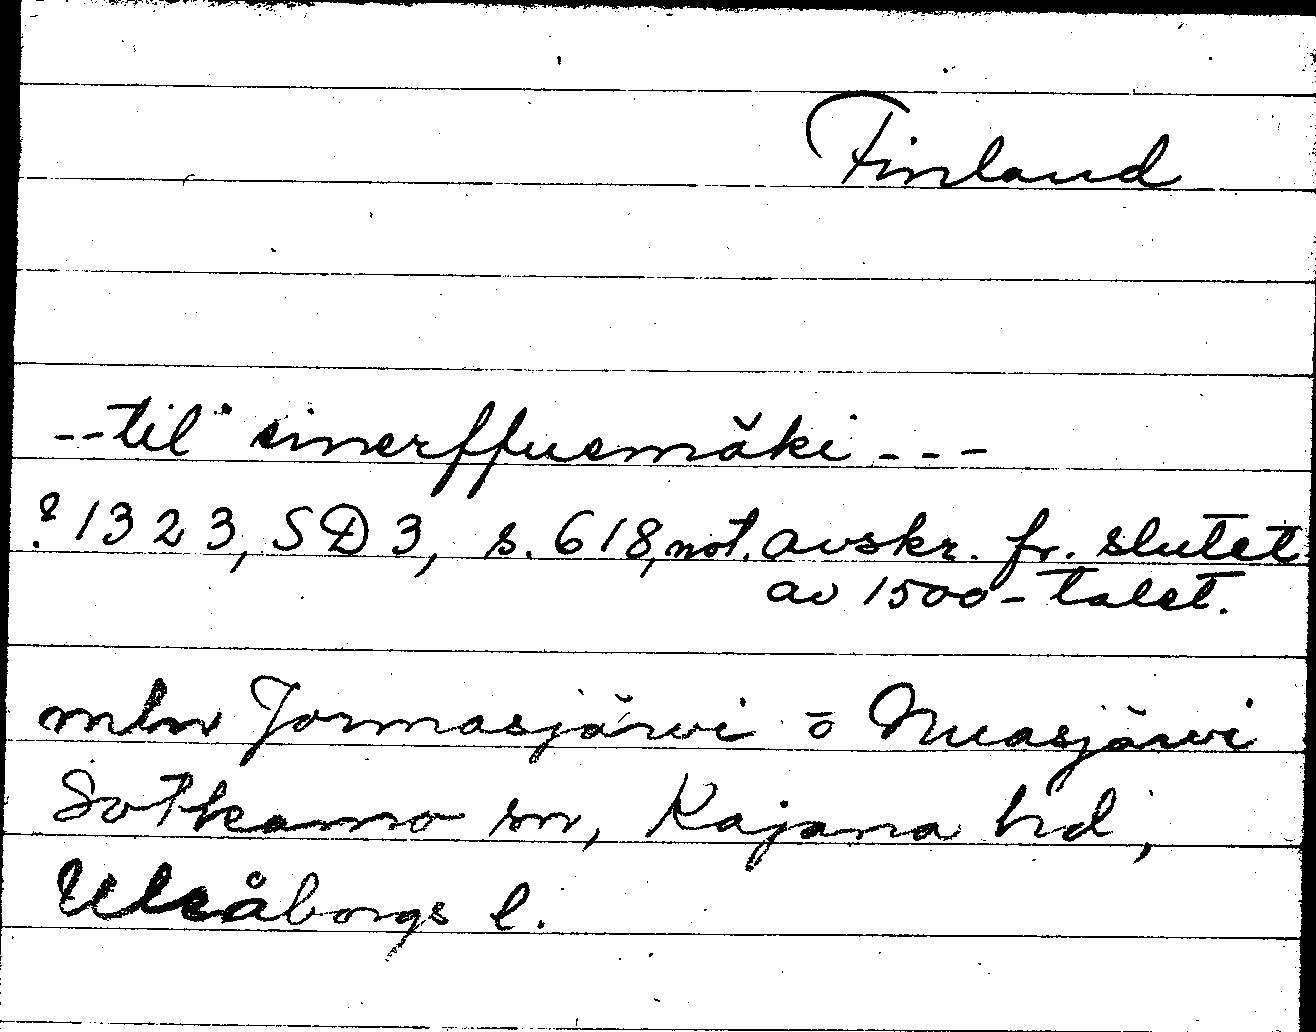 Finland
--til" sinerffuemäki ---
? 1323, SD 3, s. 618, not. avskr. fr. slutet
av 1500-talet.
mln Jormasjärvi o Nuasjärvi
Sotkamo sn, Kajana hd,
Uleåborgs l.